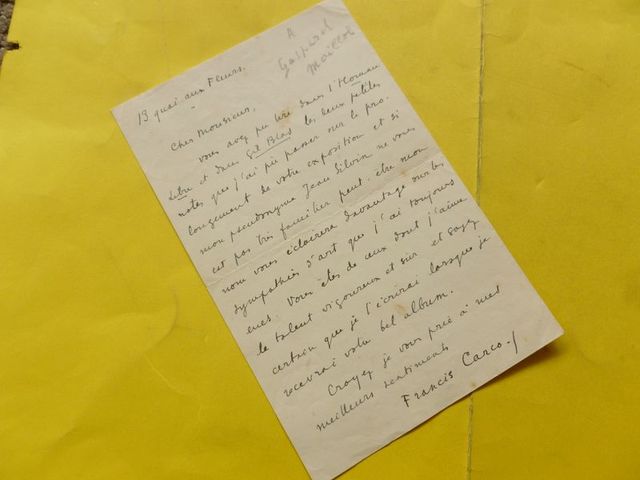 A
Gaspard
Maillol
13 quai aux Fleurs.
Cher Monsieur,
Vous avez pu lire dans l'Homme
Libre et dans Gil Blas les deux petites
notes que j'ai pu passer sur le pro-
longement de votre exposition et si
mon pseudonyme Jean Silvin ne vous
est pas très familier peut-être mon
nom vous éclairera davantage sur les
sympathies d'art que j'ai toujours
eues. Vous êtes de ceux dont j'aime
le talent vigoureux et sûr et soyez
certain que je l'écrirai lorsque je
recevrai votre bel album.
Croyez je vous prie à mes
meilleurs sentiments
Francis Carco